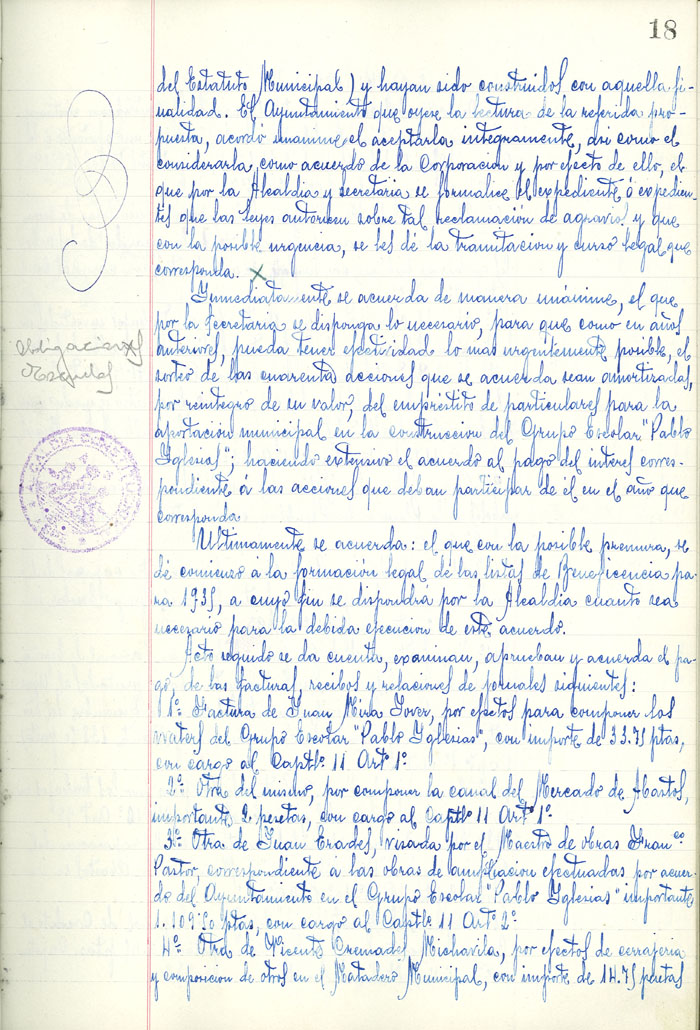 18
del Estatuto Municipal) y hayan sido construidos con aquella fi-
nalidad. El Ayuntamiento que oyere la lectura de la referida pro-
puesta, acordó unanime el aceptarla integramente, asi como el
considerarla como acuerdo de la Corporacion y por efecto de ello, el
que por la Alcaldia y secretaria se formalice el expediente ó expedien-
tes que las leyes autoricen sobre tal reclamación de agravios y que
con la posible urgencia, se les dé la tramitacion y curso legal que
corresponda.
Inmediatamente se acuerda de manera unánime, el que
por la Secretaria se disponga lo necesario, para que como en años
anteriores, pueda tener efectividad lo mas urgentemente posible, el
sorteo de las cuarenta acciones que se acuerda sean amortizadas,
por reintegro de su valor, del empréstito de particulares para la
aportación municipal en la construccion del Grupo Escolar "Pablo
Iglesias"; haciendo extensivo el acuerdo al pago del interes corres-
pondiente á las acciones que deban participar de él en el año que
corresponda
Obligaciones
Escuelas
ALCALDIA CONSTITUCIONAL
Ultimamente se acuerda: el que con la posible premura, se
dé comienzo a la formación legal de las listas de Beneficencia pa-
ra 1935, a cuyo fin se dispondrá por la Alcaldia cuanto sea
necesario para la debida ejecucion de este acuerdo.
Acto seguido se da cuenta, examinan, aprueban y acuerda el pa-
go, de las facturas, recibos y relaciones de jornales siguientes:
1º Factura de Juan Mira Jover, por efectos para componer los
waters del Grupo Escolar "Pablo Iglesias", con importe de 33.75 ptas,
con cargo al Captlº 11 Artº 1º
2º Otra del mismo, por componer la canal del Mercado de Abastos,
importante 2 pesetas, con cargo al Captlº 11 Artº 1º
3º Otra de Juan Erades, visada por el Maestro de obras Franᶜᵒ
Pastor, correspondiente á las obras de ampliacion efectuadas por acuer-
do del Ayuntamiento en el Grupo Escolar "Pablo Iglesias" importante
1.109'50 ptas, con cargo al Captlº 11 Artº 2º
4º Otra de Vicente Cremades Michavila, por efectos de cerrajeria
y composicion de otros en el Matadero Municipal, con importe de 14.75 pesetas